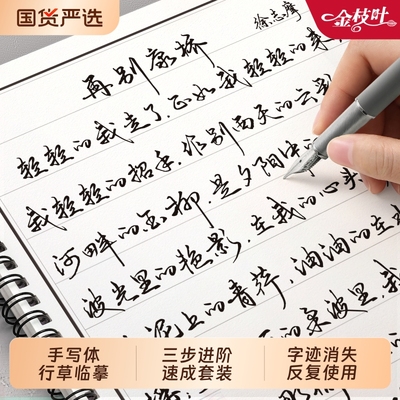 国货严选
金枝叶
再别康桥
徐志摩
轻轻的我走了,正如我轻轻的来
我轻轻的招手,作别西天的云彩
河畔的金柳,是夕阳中
波光里的艳影,在我的心头
泥上的青荇,油油的在
的柔波里,我
手写体
行草临摹
三步进阶
速成套装
字迹消失
反复使用